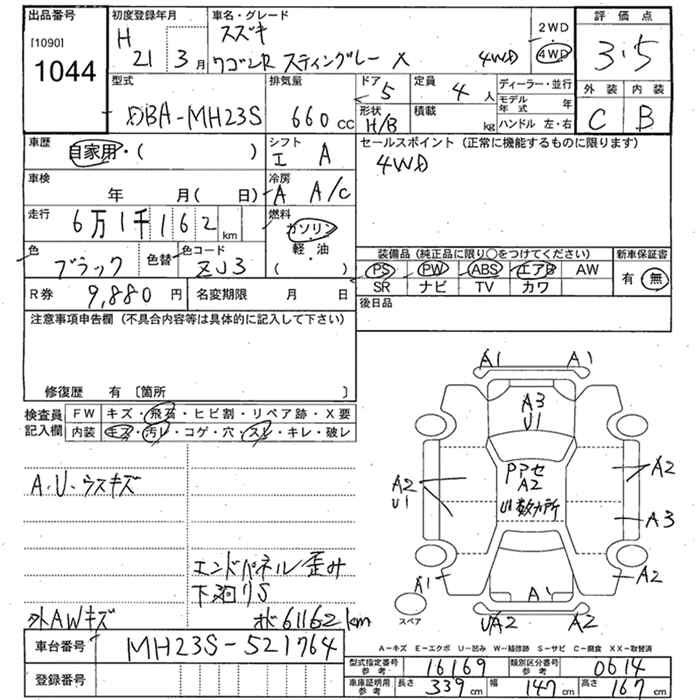 出品番号
[1090]
1044
初度登録年月 車名・グレード
H 21年 3月
スズキ
ワゴンR スティングレー X 4WD
2WD
4WD
評価点
3.5
外装 内装
C B
型式 排気量
DBA-MH23S 660cc
ドア 5 定員 4人
形状 H/B 積載 kg
ディーラー・並行
モデル年式 年
ハンドル 左・右
車歴 自家用・( )
シフト I A
セールスポイント (正常に機能するものに限ります)
4WD
車検 年 月( 日)
冷房 A A/C
走行 6万1千162km
燃料 ガソリン・軽・油 ( )
色 ブラック 色替 色コード ZJ3
装備品 (純正品に限り○をつけてください) 新車保証書
PS PW ABS エアB AW 有・無
SR ナビ TV カワ
R券 9,880円 名変期限 月 日
後日品
注意事項申告欄 (不具合内容等は具体的に記入して下さい)
修復歴 有 〔箇所 〕
検査員記入欄
FW キズ・飛石・ヒビ割・リペア跡・X要
内装 キズ・汚レ・コゲ・穴・スレ・キレ・破レ
A.U.ウスキズ
エンドパネル歪み
下廻りS
外AWキズ
61162km
A1 A1
A3
U1
PアセA2
U1数カ所
A2
U1
A2
A3
A1
A1
A2
UA2 A2
スペア
A-キズ E-エクボ U-凹み W-補修跡 S-サビ C-腐食 XX-取替済
車台番号 MH23S-521764
登録番号
型式指定番号 参考 16169 類別区分番号 参考 0614
車庫証明用 参考 長さ 339cm 幅 147cm 高さ 167cm